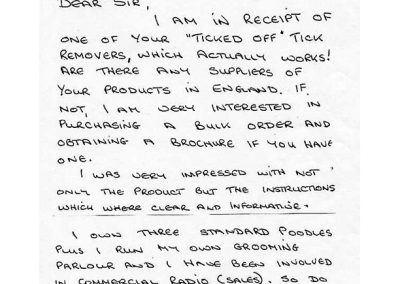 DEAR SIR,
I AM IN RECEIPT OF
ONE OF YOUR "TICKED OFF" TICK
REMOVERS, WHICH ACTUALLY WORKS!
ARE THERE ANY SUPPLIERS OF
YOUR PRODUCTS IN ENGLAND. IF
NOT, I AM VERY INTERESTED IN
PURCHASING A BULK ORDER AND
OBTAINING A BROCHURE IF YOU HAVE
ONE.
I WAS VERY IMPRESSED WITH NOT
ONLY THE PRODUCT BUT THE INSTRUCTIONS
WHICH WHERE CLEAR AND INFORMATIVE.
I OWN THREE STANDARD POODLES
PLUS I RUN MY OWN GROOMING
PARLOUR AND I HAVE BEEN INVOLVED
IN COMMERCIAL RADIO (SALES). SO DO